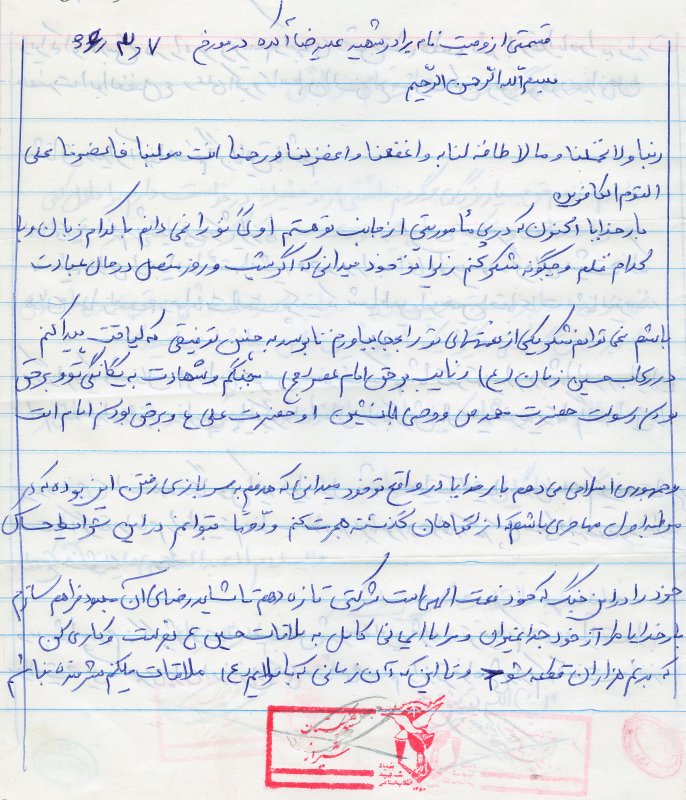 قسمتی از وصیت نامه برادر شهید علیرضا آکده در مورخ ۷ر۳ر
بسم الله الرحمن الرحیم
ربنا و لا تحملنا و ما لا طاقه لنا به و اغفعنا و اغفر لنا و رحمنا انت مولینا فانصرنا علی
القوم الکافرین
بار خدایا اکنون که در پی مأموریتی از جانب تو هستم او لاً تو را نمی دانم با کدام زبان و با
کدام قلم و چگونه شکر کنم زیرا تو خود میدانی که اگر شب و روز متصل در حال عبادت
باشم نمی توانم شکر یکی از نعمتهای تو را بجا بیاورم تا برسد به چنین توفیقی که لیاقت پیدا کنم
در رکاب حسین زمان (ع) و نایب بر حق امام عصر (عج) بجنگم و شهادت به یگانگی تو و بر حق
بودن رسولت حضرت محمد ص و وصی جانشین او حضرت علی ع و بر حق بودن امام امت
و جمهوری اسلامی می دهم بار خدایا در واقع تو خود میدانی که هدفم به سربازی رفتن این بوده که در
مرحله اول مهاجری باشم که از گناهان گذشته هجرت کنم و دوماً بتوانم در این شرایط حساس
خود را در این جنگ که خود نعمت الهی است شرکتی تازه دهم تا شاید رضای آن معبود فراهم سازم
بار خدایا مرا از خود جدا نگردان و مرا با ایمانی کامل به ملاقات حسین ع بفرست و کاری کن
که بدنم هزاران قطعه بشود و تا این که آن زمانی که با مولایم (ع) ملاقات میکنم شرمنده نباشم
شهرستان
شیراز
بنیاد
شهید
انقلاب اسلامی